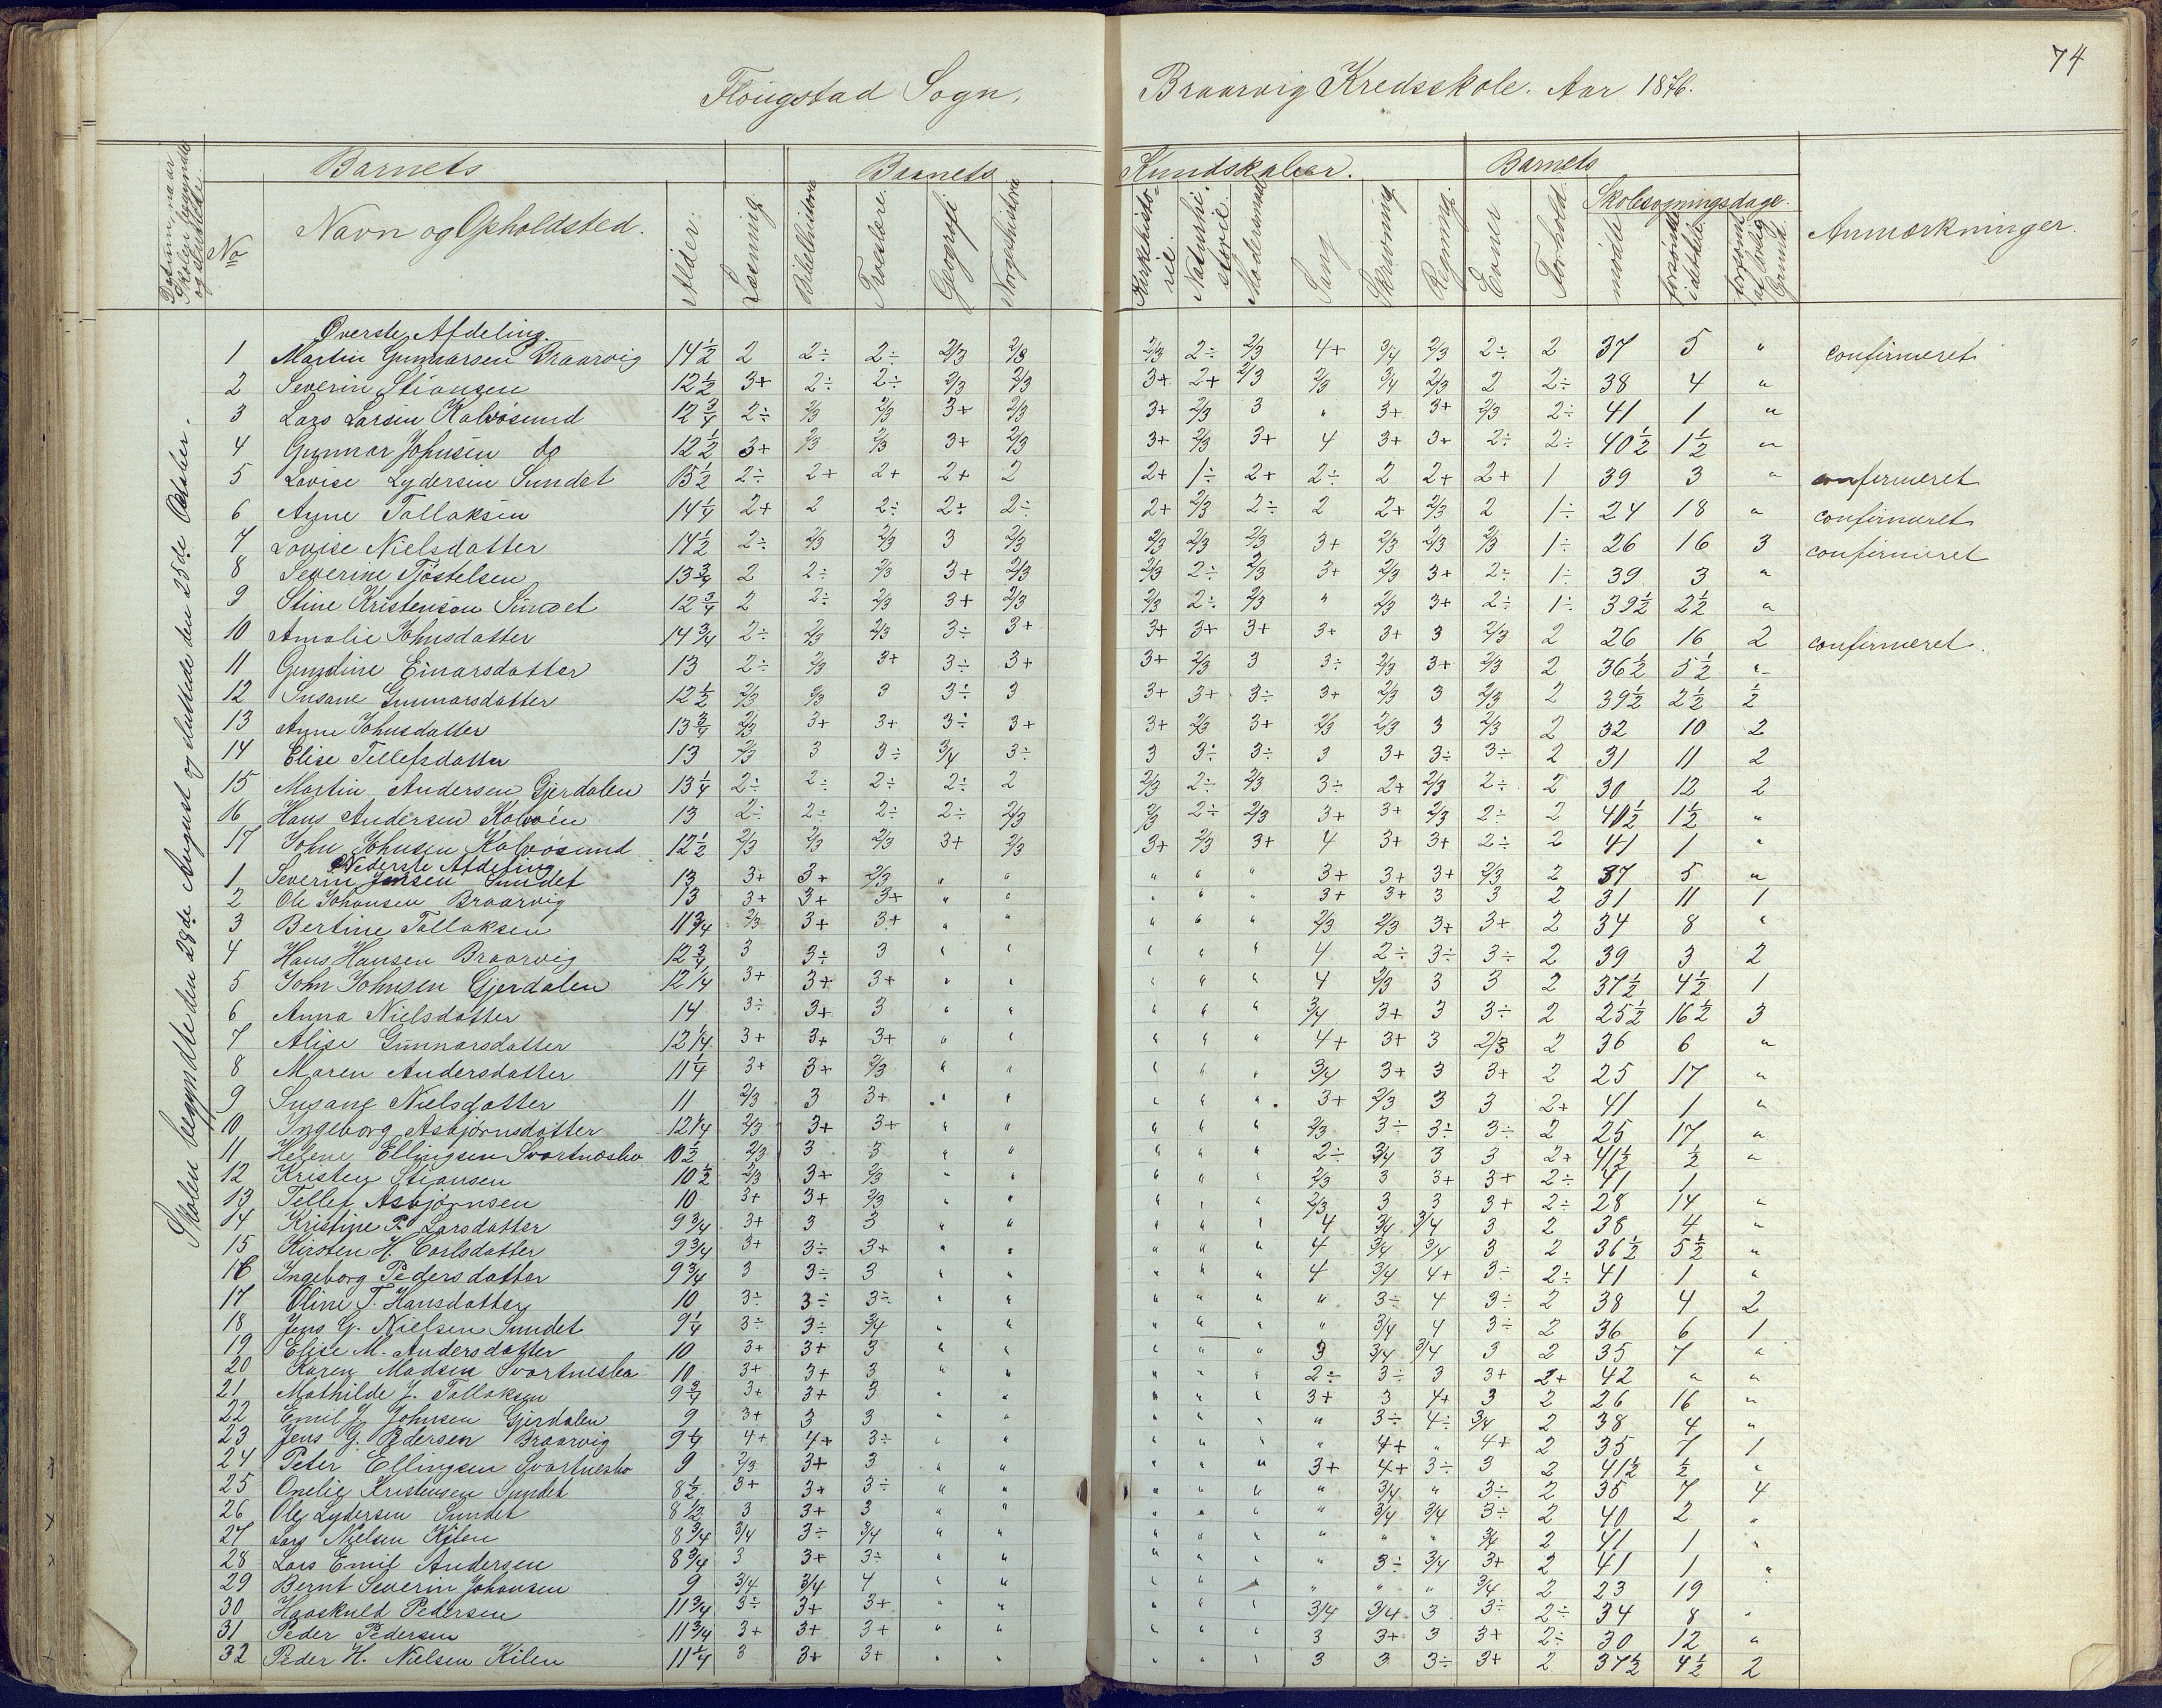 74
Flougstad Sogn, Braarvig Kredsskole. Aar 1876.
Barnets Barnets Kundskaber. Barnets
Datum naar Skolen begyndte og sluttede.
No Navn og Opholdsted. Alder. Læsning Bibelhistorie Troeslære. Geografi Norgeshistorie Kirkehistorie Naturhistorie. Modersmaal Sang Skrivning Regning. Evner Forhold. Skolesøgningsdage. mødte forsømte idethele forsømte af lovlig Grund. Anmærkninger.
Skolen begyndte den 28de August og sluttede den 25de October.
Øverste Afdeling.
1 Martin Gunnarsen Braarvig 14½ 2 2÷ 2÷ 2/3 2/3 2/3 2÷ 2/3 4+ 3/4 2/3 2÷ 2 37 5 " confirmeret
2 Severin Stiansen 12½ 3+ 2÷ 2÷ 2/3 2/3 3+ 2+ 2/3 2/3 3/4 2/3 2 2÷ 38 4 "
3 Lars Larsen Kalvøsund 12¾ 2÷ 2/3 2/3 3+ 2/3 3+ 2/3 3 " 3+ 3+ 2/3 2÷ 41 1 "
4 Gunnar Johnsen do 12½ 3+ 2/3 2/3 3+ 2/3 3+ 2/3 3+ 4 3+ 3+ 2÷ 2÷ 40½ 1½ "
5 Lovise Lydersen Sundet 15½ 2÷ 2+ 2+ 2+ 2 2+ 1÷ 2+ 2÷ 2 2+ 2+ 1 39 3 " confirmeret
6 Anne Tallaksen 14¼ 2+ 2 2÷ 2÷ 2÷ 2+ 2/3 2÷ 2 2+ 2/3 2 1÷ 24 18 " confirmeret
7 Lovise Nielsdatter 14½ 2÷ 2/3 2/3 3 2/3 2/3 2/3 2/3 3+ 2/3 2/3 2/3 1÷ 26 16 3 confirmeret
8 Severine Tjøstelsen 13¾ 2 2÷ 2/3 3+ 2/3 2/3 2÷ 2/3 3+ 2/3 3+ 2÷ 1÷ 39 3 "
9 Stine Kristensen Sundet 12¾ 2 2÷ 2/3 3+ 2/3 2/3 2÷ 2/3 " 2/3 3+ 2÷ 1÷ 39½ 2½ "
10 Amalie Johnsdatter 14¾ 2÷ 2/3 2/3 3÷ 3+ 3+ 3+ 3+ 3+ 3+ 3 2/3 2 26 16 2 confirmeret.
11 Gundine Einarsdatter 13 2÷ 2/3 3+ 3÷ 3+ 3+ 2/3 3 3÷ 2/3 3+ 2/3 2 36½ 5½ "
12 Susane Gunnarsdatter 12½ 2/3 2/3 3 3÷ 3 3+ 3+ 3÷ 3+ 2/3 3 2/3 2 39½ 2½ ½
13 Anne Johnsdatter 13¾ 2/3 3+ 3+ 3÷ 3+ 3+ 2/3 3+ 2/3 2/3 3 2/3 2 32 10 2
14 Elise Tellefsdatter 13 2/3 3 3÷ 3/4 3÷ 3 3÷ 3÷ 3 3+ 3÷ 3÷ 2 31 11 2
15 Martin Andersen Gjerdalen 13¼ 2÷ 2÷ 2÷ 2÷ 2 2/3 2÷ 2/3 3÷ 2+ 2/3 2÷ 2 30 12 2
16 Hans Andersen Kalvøen 13 2÷ 2÷ 2÷ 2÷ 2/3 2/3 2÷ 2/3 3+ 3+ 2/3 2÷ 2 40½ 1½ "
17 John Johnsen Kalvøsund 12½ 2/3 2/3 2/3 3+ 2/3 3+ 2/3 3+ 4 3+ 3+ 2÷ 2 41 1 "
Nederste Afdeling
1 Severin Jensen Sundet 13 3+ 3+ 2/3 " " " " " 3+ 3+ 3+ 2/3 2 37 5 "
2 Ole Johansen Braarvig 13 3+ 3+ 3+ " " " " " 3+ 3+ 3 3 2 31 11 1
3 Bertine Tallaksen 11¾ 2/3 3+ 3+ " " " " " 2/3 2/3 3+ 3+ 2 34 8 "
4 Hans Hansen Braarvig 12¾ 3 3÷ 3 " " " " " 4 2÷ 3÷ 3÷ 2 39 3 2
5 John Johnsen Gjerdalen 12¼ 3+ 3+ 3+ " " " " " 4 2/3 3 3 2 37½ 4½ 1
6 Anna Nielsdatter 14 3÷ 3+ 3 " " " " " 3/4 3+ 3 3÷ 2 25½ 16½ 3
7 Alise Gunnarsdatter 12¼ 3+ 3+ 3+ " " " " " 4+ 3+ 3 2/3 2 36 6 "
8 Maren Andersdatter 11¼ 3+ 3+ 2/3 " " " " " 3/4 3+ 3 3+ 2 25 17 "
9 Susane Nielsdatter 11 2/3 3 3+ " " " " " 3+ 2/3 3 3 2+ 41 1 "
10 Ingeborg Asbjørnsdatter 12¼ 2/3 3+ 3+ " " " " " 2/3 3÷ 3÷ 3÷ 2 25 17 "
11 Helene Ellingsen Svartnesbo 10½ 2/3 3 3 " " " " " 2÷ 3/4 3 3 2+ 41½ ½ "
12 Kristen Stiansen 10½ 2/3 3+ 2/3 " " " " " 2/3 3 3+ 3+ 2÷ 41 1
13 Tellef Asbjørnsen 10 3+ 3+ 2/3 " " " " " 2/3 3 3 3+ 2÷ 28 14 "
14 Kristine P. Larsdatter 9¾ 3+ 3 3 " " " " " 4 3/4 3/4 3 2 38 4 "
15 Kirsten H. Carlsdatter 9¾ 3+ 3÷ 3+ " " " " " 4 3/4 3/4 3 2 36½ 5½ "
16 Ingeborg Pedersdatter 9¾ 3 3÷ 3 " " " " " 4 3/4 4+ 3÷ 2÷ 41 1 "
17 Oline T. Hansdatter 10 3÷ 3÷ 3÷ " " " " " " 3÷ 4 3÷ 2 38 4 2
18 Jens G. Nielsen Sundet 9¼ 3÷ 3÷ 3/4 " " " " " " 3/4 4 3÷ 2 36 6 1
19 Elise M. Andersdatter 10 3+ 3+ 3 " " " " " 3 3/4 3/4 3 2 35 7 "
20 Karen Madsen Svartnesbo 10 3+ 3+ 3 " " " " " 2÷ 3÷ 3 3+ 2+ 42 " "
21 Mathilde J. Tallaksen 9¾ 3+ 3+ 3 " " " " " 3+ 3 4+ 3 2 26 16 "
22 Emil J. Johnsen Gjerdalen 9 3+ 3 3 " " " " " " 3÷ 4÷ 3/4 2 38 4 "
23 Jens G. Pedersen Braarvig 9¼ 4+ 4+ 3÷ " " " " " " 4+ " 4+ 2 35 7 1
24 Peter Ellingsen Svartnesbo 9 2/3 3+ 3 " " " " " 3+ 4+ 3÷ 3 2 41½ ½ "
25 Onelie Kristensen Sundet 8½ 3+ 3+ 3÷ " " " " " " 3/4 " 3÷ 2 35 7 4
26 Ole Lydersen Sundet 8½ 3 3+ 3 " " " " " " 3/4 3/4 3÷ 2 40 2 "
27 Lars Nielsen Kilen 8¾ 3/4 3÷ 3/4 " " " " " " " " 3/4 2 41 1 "
28 Lars Emil Andersen 8¾ 3 3+ 3÷ " " " " " " 3÷ 3/4 3+ 2 41 1 "
29 Bernt Severin Johansen 9 3/4 3/4 4 " " " " " " " " 3/4 2 23 19 "
30 Haaskuld Pedersen 11¾ 3÷ 3+ 3+ " " " " " 3/4 3/4 3 3÷ 2÷ 34 8 "
31 Peder Pedersen 11¾ 3+ 3+ 3+ " " " " " 3 3+ 3 3+ 2÷ 30 12 "
32 Peder H. Nielsen Kilen 11¼ 3 3+ 3+ " " " " " 3 3 3÷ 3+ 2 37½ 4½ 2